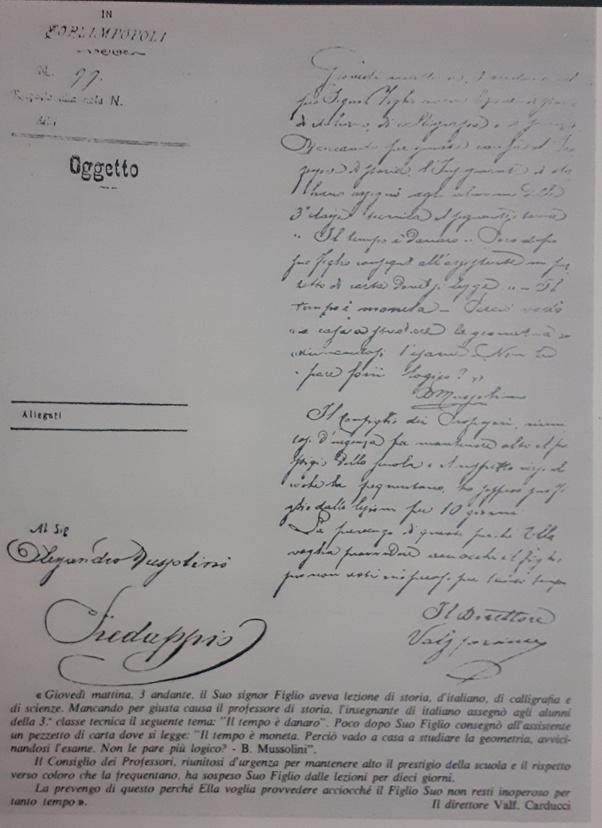 IN
FORLIMPOPOLI
N. 99.
Risposta alla nota N.
Oggetto
Allegati
Al Sig
Alessandro Mussolini
Predappio
Giovedì mattina, 3 andante, il
Suo Signor Figlio aveva lezione di storia
di italiano, di calligrafia e di scienze.
Mancando per giusta causa il Pro
fessore di storia, l'insegnante di ita
liano assegnò agli alunni della
3ª classe tecnica il seguente tema
" Il tempo è danaro ". Poco dopo
Suo figlio consegnò all'assistente un pez
zetto di carta dove si legge " Il
tempo è moneta - Perciò vado
a casa a studiare la geometria
avvicinandosi l'esame. Non le
pare più logico? "
B Mussolini
Il Consiglio dei Professori, riuni
tosi d'urgenza per mantenere alto il pre
stigio della scuola e il rispetto verso co
loro che la frequentano, ha sospeso suo Fi
glio dalle lezioni per 10 giorni.
La prevengo di questo perchè Ella
voglia provvedere acciocchè il figlio
suo non resti inoperoso per tanto tempo
Il Direttore
« Giovedì mattina, 3 andante, il Suo signor Figlio aveva lezione di storia, d'italiano, di calligrafia e
di scienze. Mancando per giusta causa il professore di storia, l'insegnante di italiano assegnò agli alunni
della 3.ª classe tecnica il seguente tema: "Il tempo è danaro". Poco dopo Suo Figlio consegnò all'assistente
un pezzetto di carta dove si legge: "Il tempo è moneta. Perciò vado a casa a studiare la geometria, avvici-
nandosi l'esame. Non le pare più logico? - B. Mussolini".
Il Consiglio dei Professori, riunitosi d'urgenza per mantenere alto il prestigio della scuola e il rispetto
verso coloro che la frequentano, ha sospeso Suo Figlio dalle lezioni per dieci giorni.
La prevengo di questo perché Ella voglia provvedere acciocché il Figlio Suo non resti inoperoso per
tanto tempo ».
Il direttore Valf. Carducci